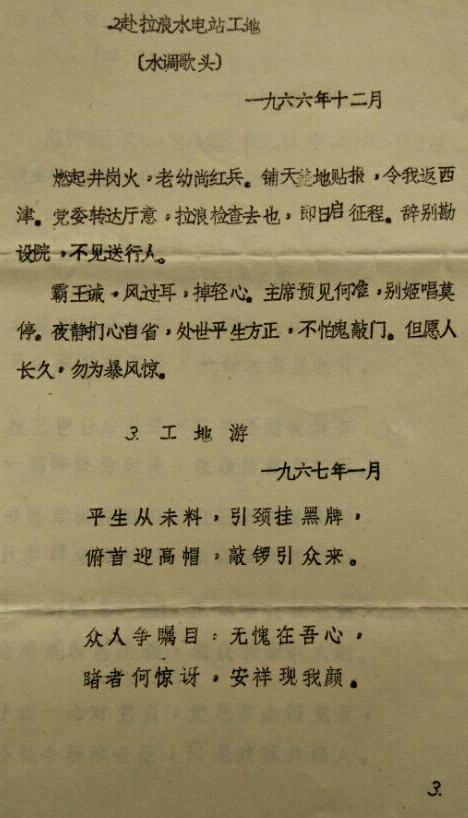 2赴拉浪水电站工地
〔水调歌头〕
一九六六年十二月
燃起井岗火，老幼尚红兵。铺天笼地贴报，令我返西
津。党委转达厅意，拉浪检查去也，即日启征程。辞别勘
设院，不见送行人。
霸王诚，风过耳，掉轻心。主席预见何准，别姬唱莫
停。夜静扪心自省，处世平生方正，不怕鬼敲门。但愿人
长久，勿为暴风惊。
3. 工地游
一九六七年一月
平生从未料，引颈挂黑牌，
俯首迎高帽，敲锣引众来。
众人争瞩目：无愧在吾心，
睹者何惊讶，安祥现我颜。
3.